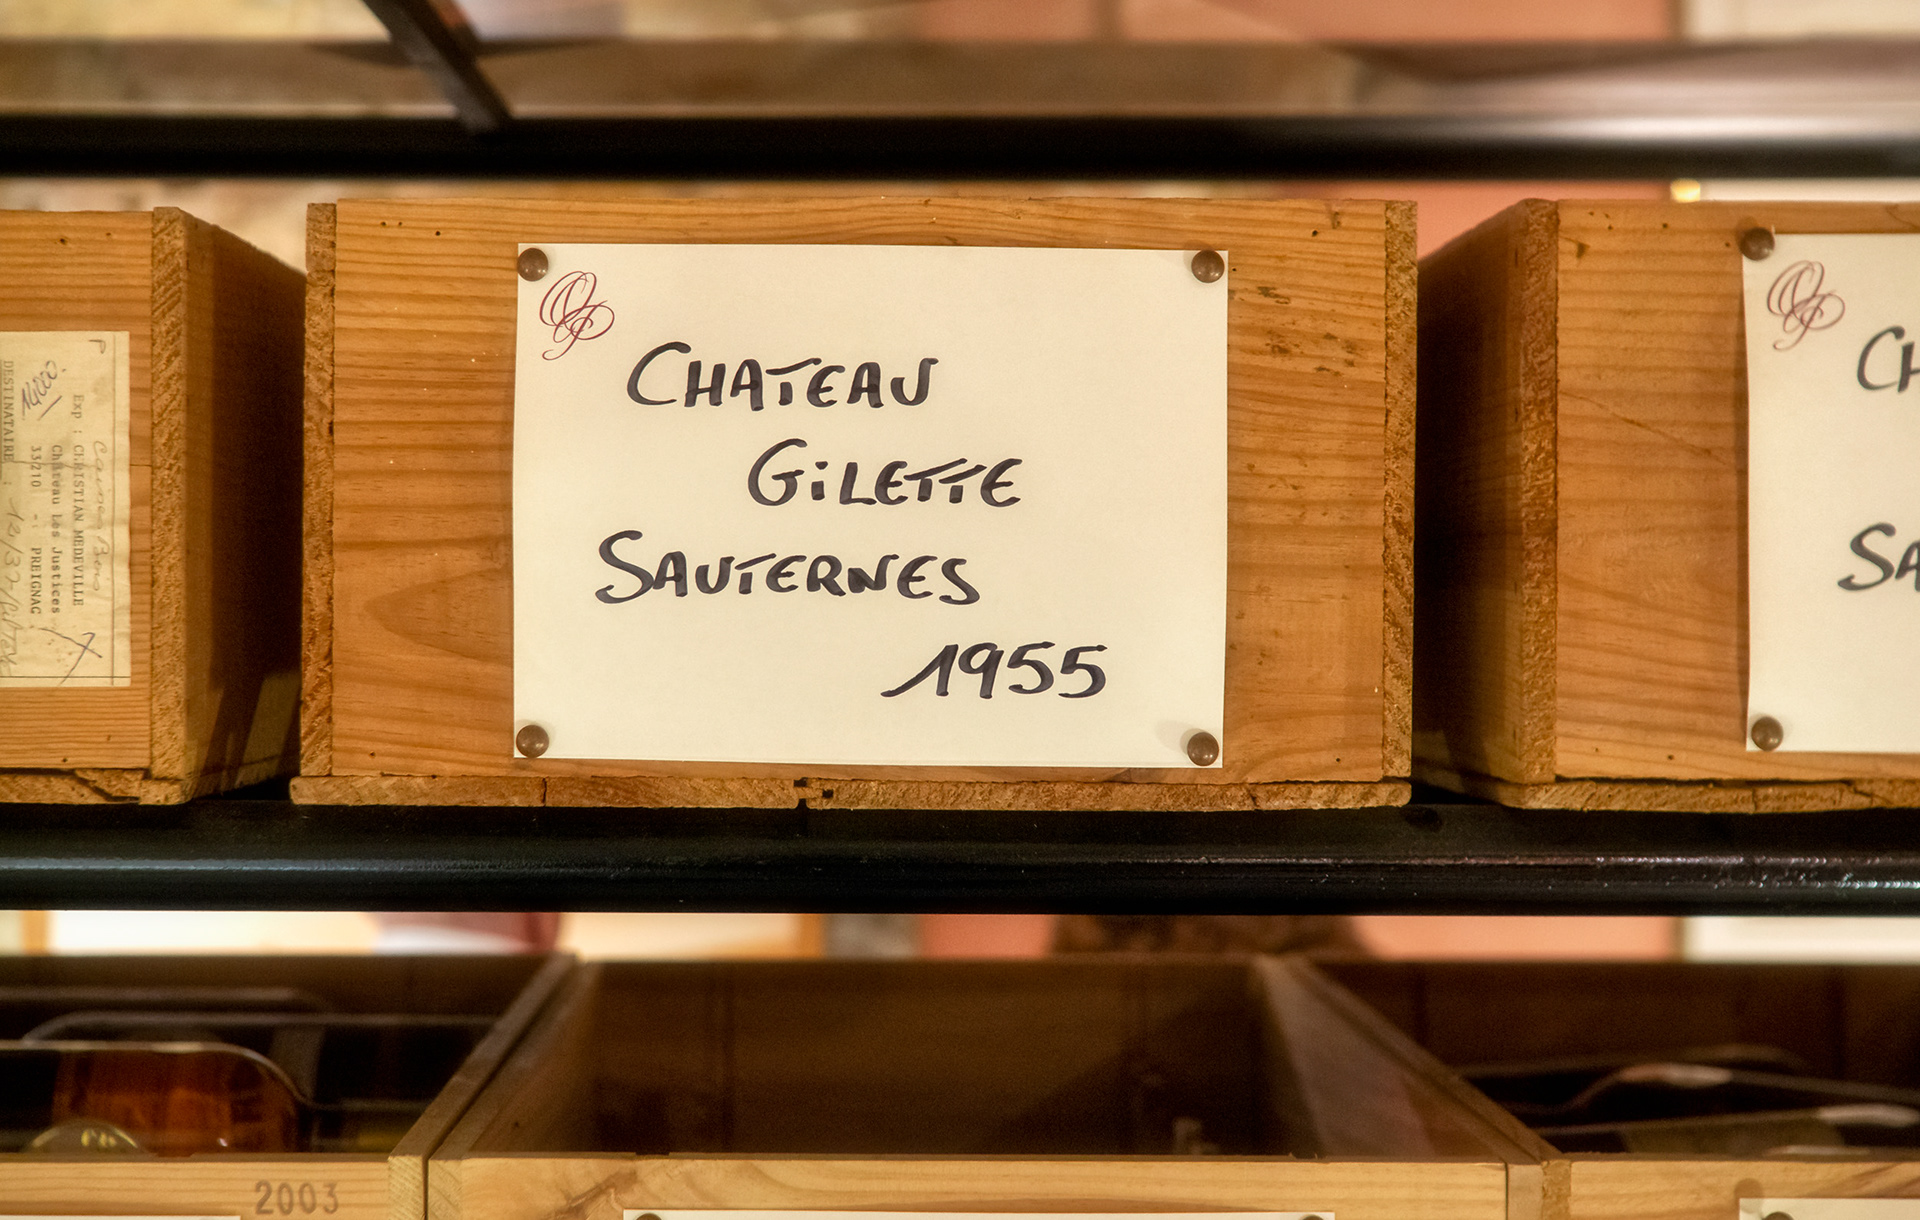 CHATEAU
GiLETTE
SAUTERNES
1955
14000.
Exp : CHRISTIAN MEDEVILLE
Château Les Justices
33210 - PREIGNAC
DESTINATAIRE :
CH
SA
2003